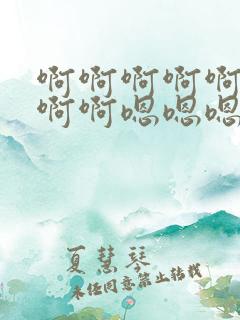 啊啊啊啊啊
啊啊嗯嗯嗯
夏慧琴
未经同意禁止转载